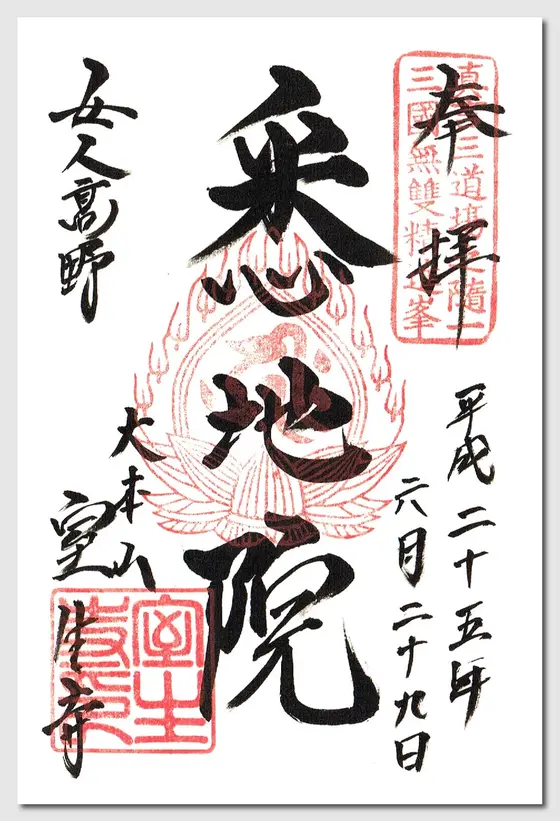 奉拝
三道場之隨一
三國無雙精進峯
平成二十五年
六月二十九日
悉地院
女人高野
大本山
室生寺
室生